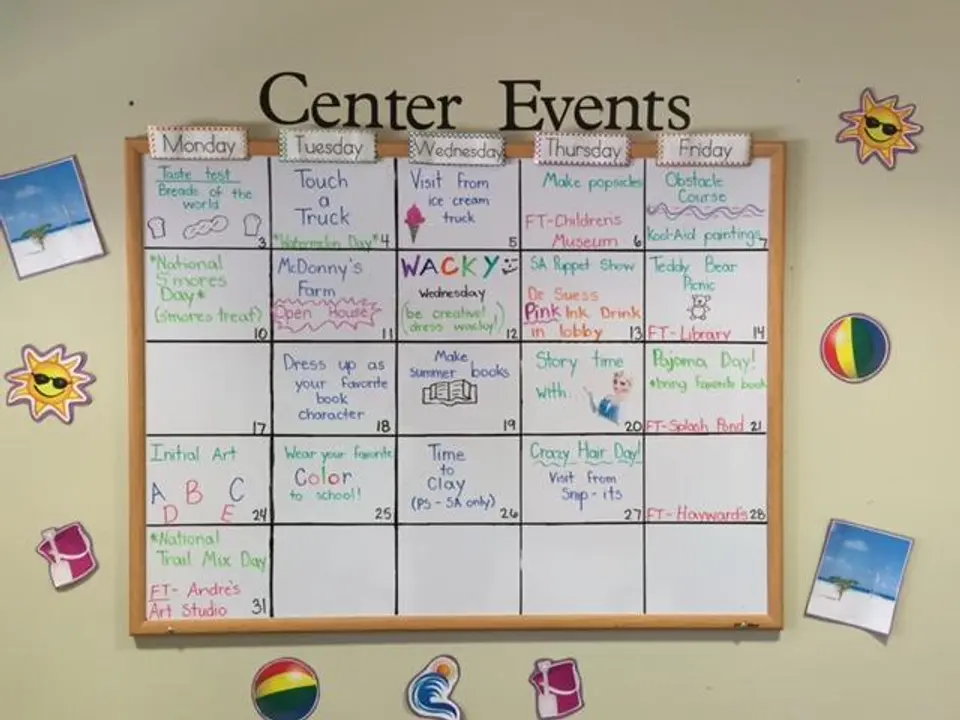 Center Events
Monday
Tuesday
Wednesday
Thursday
Friday
Taste test
Breads of the
world
3
Touch
a
Truck
*Watermelon Day*
4
Visit from
ice cream
truck
5
Make popsicles
FT-Children's
Museum
6
Obstacle
Course
Kool-Aid paintings
7
*National
S'mores
Day*
(s'mores treat)
10
McDonny's
Farm
Open House
11
WACKY
Wednesday
(be creative!
dress wacky!)
12
SA Puppet Show
Dr Suess
Pink Ink Drink
in lobby
13
Teddy Bear
Picnic
FT-Library
14
17
Dress up as
your favorite
book
character
18
Make
summer books
19
Story time
with
20
Pajama Day!
*bring favorite book
FT-Splash Pond
21
Initial Art
A B C
D E
24
Wear your favorite
Color
to school!
25
Time
to
Clay
(PS-SA only)
26
Crazy Hair Day!
Visit from
Snip-its
27
FT-Hayward's
28
*National
Trail Mix Day
FT- Andre's
Art Studio
31